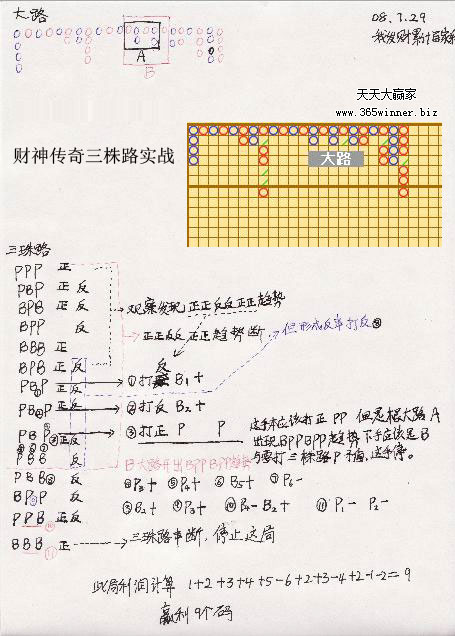 大路
08.7.29
A
B
天天大赢家
www.365winner.biz
财神传奇三株路实战
大路
三珠路
PPP 正
PBP 正 反
BPB 正 反
BPP 反
BBB 正
BPB 正 反
观察发现正正反反正正趋势
正正反反正正趋势断
但形成反单打反
PBP 反
①打反 B1+
PBP 反
②打反 B2+
PBP 正反
③打正 P P
这手本应该打正PP 但是根大路A
出现BPPBPP趋势 下手应该是B
与要打三株路P矛盾,这手停。
B大路开出BPPBPP趋势
PBB 反
PBB 反
④P3+ ⑤P4+ ⑥B5+ ⑦P6-
BPP 反
PPB 正反
⑧B2+ ⑨P3+ ⑩P4- B2+ ⑪ P1- P2-
BBB 正
三珠路中断,停止这局
此局利润计算 1+2+3+4+5-6+2+3-4+2-1-2=9
赢利9个码